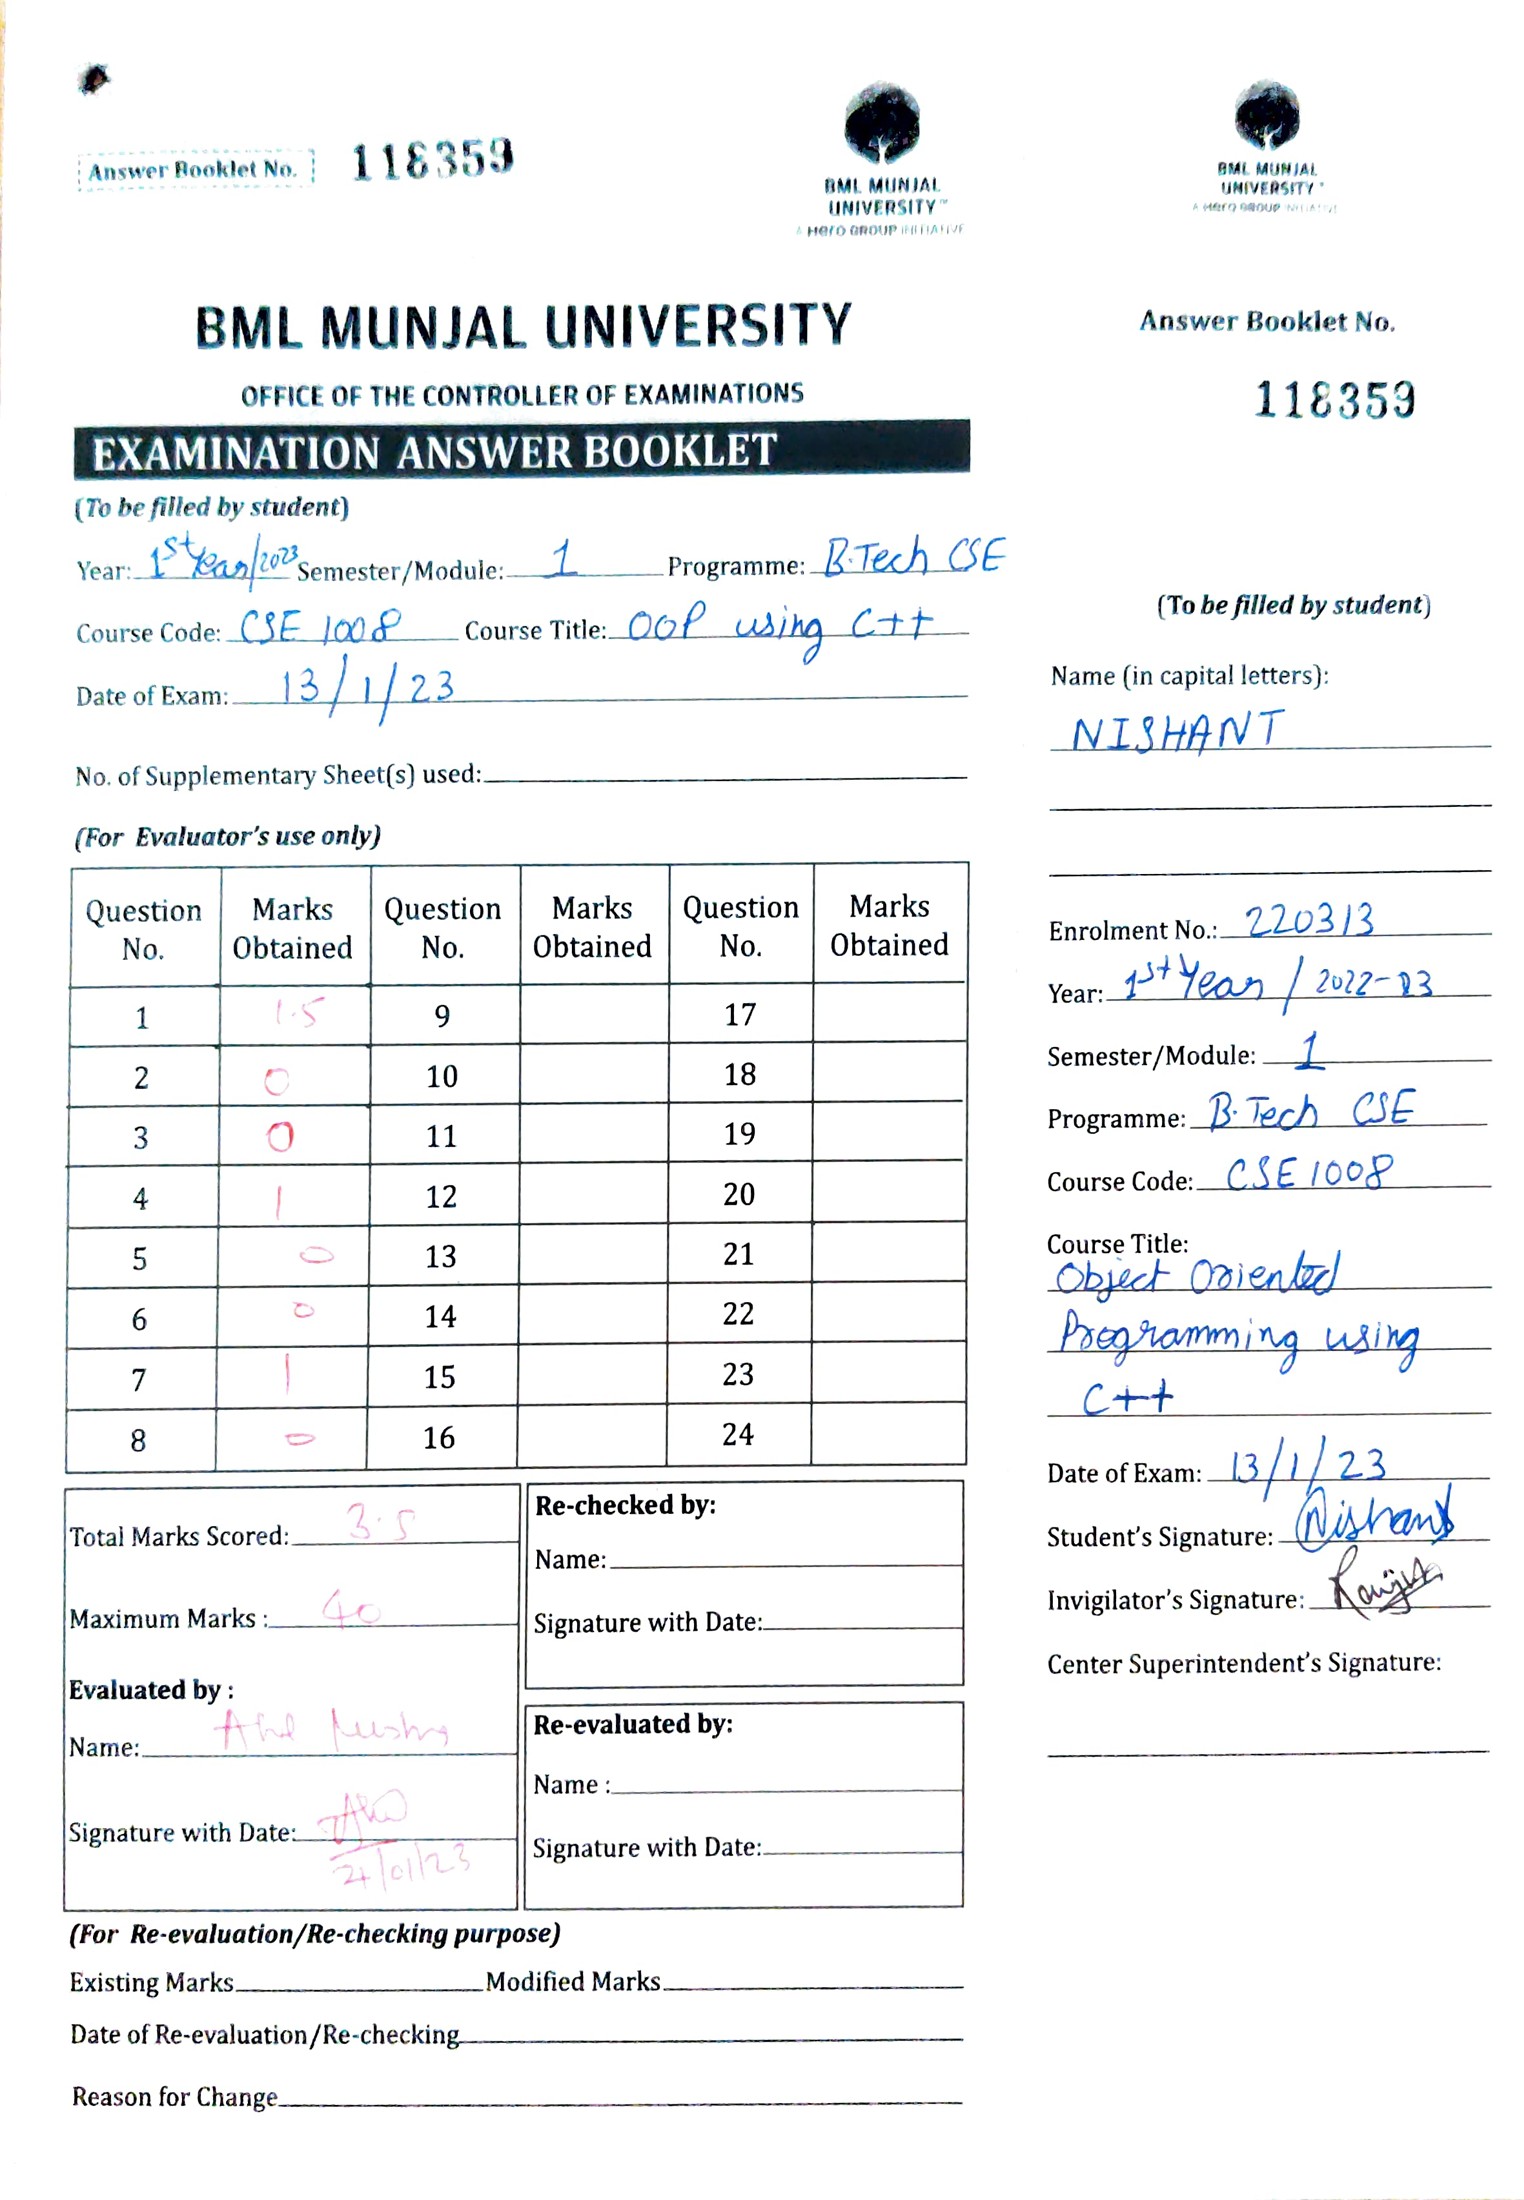 Answer Booklet No. 118359
BML MUNJAL
UNIVERSITY™
A Hero GROUP INITIATIVE
BML MUNJAL
UNIVERSITY
A Hero GROUP INITIATIVE
BML MUNJAL UNIVERSITY
OFFICE OF THE CONTROLLER OF EXAMINATIONS
EXAMINATION ANSWER BOOKLET
(To be filled by student)
Year: 1st Year/2023 Semester/Module: 1 Programme: B.Tech CSE
Course Code: CSE 1008 Course Title: OOP using C++
Date of Exam: 13/1/23
No. of Supplementary Sheet(s) used:
(For Evaluator's use only)
Question No. Marks Obtained Question No. Marks Obtained Question No. Marks Obtained
1 1.5 9 17
2 0 10 18
3 0 11 19
4 1 12 20
5 0 13 21
6 0 14 22
7 1 15 23
8 0 16 24
Total Marks Scored: 3.5
Maximum Marks : 40
Evaluated by :
Name:
Signature with Date: 21/01/23
Re-checked by:
Name:
Signature with Date:
Re-evaluated by:
Name :
Signature with Date:
(For Re-evaluation/Re-checking purpose)
Existing Marks Modified Marks
Date of Re-evaluation/Re-checking
Reason for Change
Answer Booklet No.
118359
(To be filled by student)
Name (in capital letters):
NISHANT
Enrolment No.: 220313
Year: 1st Year / 2022-23
Semester/Module: 1
Programme: B.Tech CSE
Course Code: CSE1008
Course Title:
Object Oriented
Programming using
C++
Date of Exam: 13/1/23
Student's Signature: Nishant
Invigilator's Signature:
Center Superintendent's Signature: